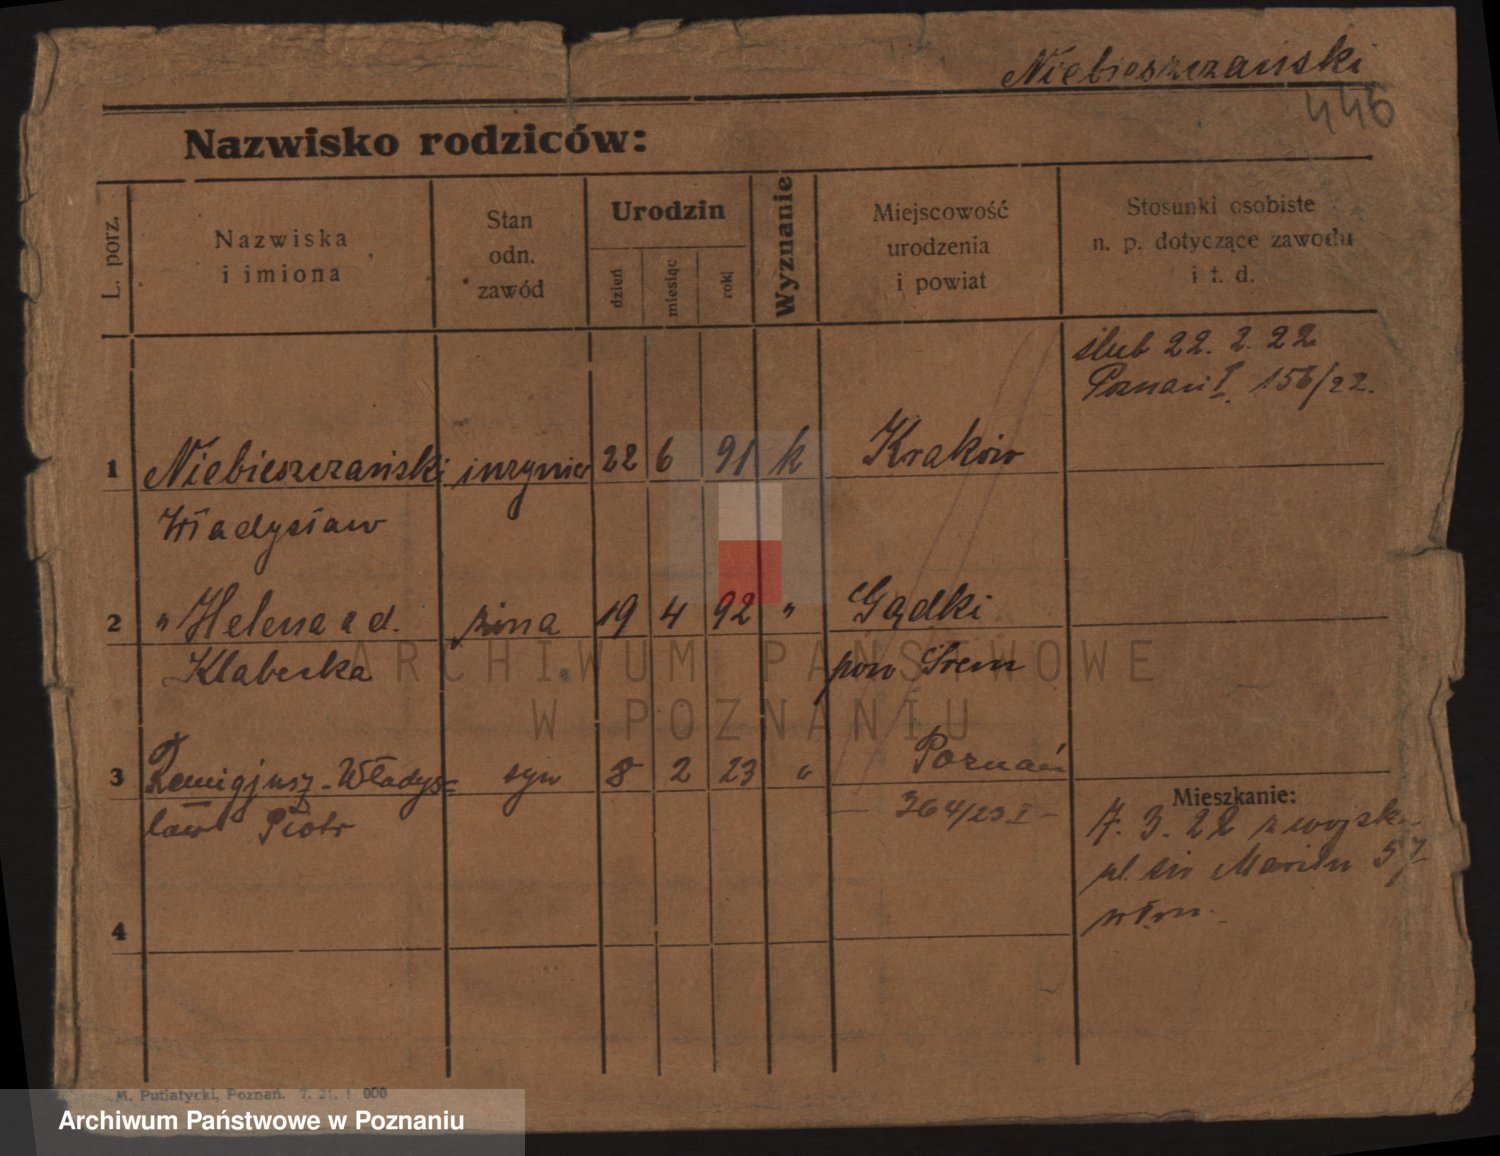 Niebieszczański
446
Nazwisko rodziców:
L. porz.
Nazwiska
i imiona
Stan
odn.
zawód
Urodzin
dzień
miesiąc
rok
Wyznanie
Miejscowość
urodzenia
i powiat
Stosunki osobiste
n. p. dotyczące zawodu
i t. d.
ślub 22. 2. 22
Poznań I. 156/22.
1 Niebieszczański inżynier 22 6 91 k Kraków
Władysław
2 " Helena z d. żona 19 4 92 " Gądki
pow Śrem
ARCHIWUM PAŃSTWOWE
W POZNANIU
3 Remigjusz-Władys= syn 8 2 23 " Poznań
ław Piotr
364/23 I
Mieszkanie:
7. 3. 22 z wojsk.
ul. św Marcin 57
4
M. Putiatycki, Poznań. 7. 21. 1 000
Archiwum Państwowe w Poznaniu